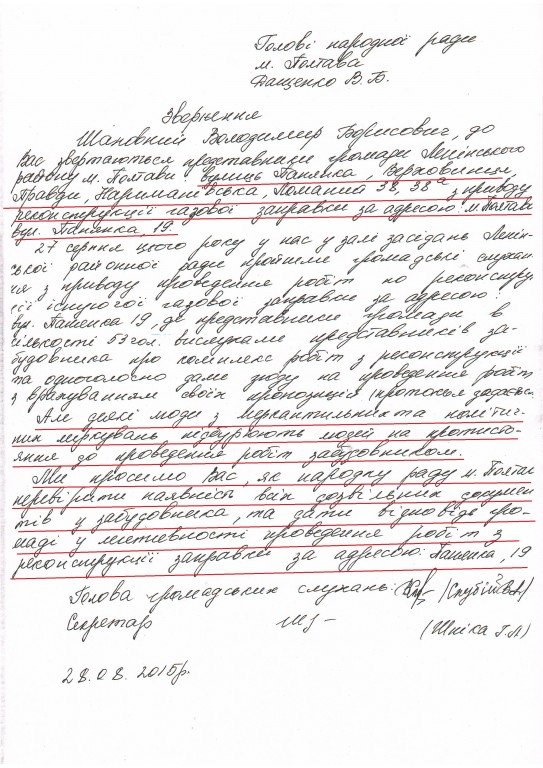 Голові народної ради
м. Полтава
Ващенко В.Б.
Звернення
Шановний Володимир Борисович, до
Вас звертаються представники громади Ленінського
району м. Полтави вулиць Паненка, Верховинця,
Правди, Нариманівська, Ломаний 38, 38а з приводу
реконструкції газової заправки за адресою: м. Полтава
вул. Паненка, 19.
27 серпня цього року у нас у залі засідань Ленін-
ської районної ради пройшли громадські слухан-
ня з приводу проведення робіт по реконструк-
ції існуючої газової заправки за адресою:
вул. Паненка 19, де представники громади в
кількості 53 гол. вислухали представників за-
будовника про комплекс робіт з реконструкції
та одноголосно дали згоду на проведення робіт
з врахуванням своїх пропозицій (протокол додається
Але деякі люди з меркантильних та політич-
них міркувань підбурюють людей на протисто-
яння до проведення робіт забудовником.
Ми просимо Вас, як народну раду м. Полтави
перевірити наявність всіх дозвільних докумен-
тів у забудовника, та дати відповідь гро-
маді у можливості проведення робіт з
реконструкції заправки за адресою: Паненка, 19
Голова громадських слухань:
Секретар (Шпіка Г.А)
28.08.2015р.